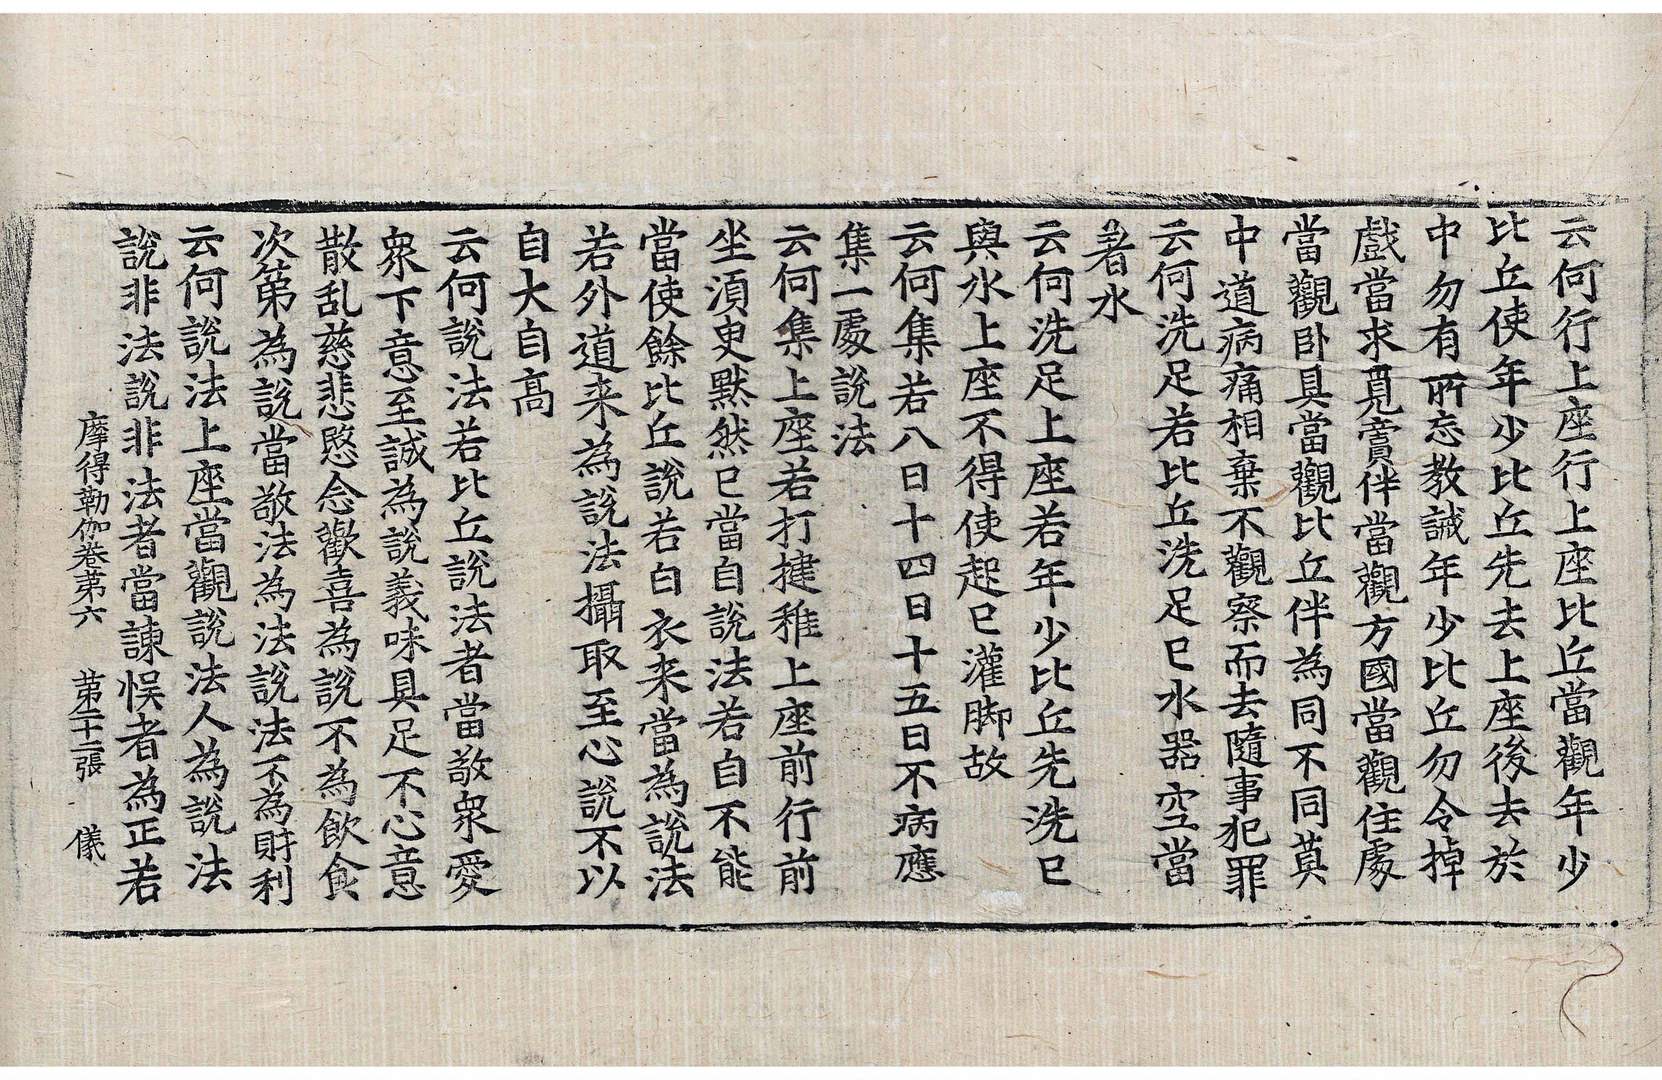 云何行上座行上座比丘當觀年少
比丘使年少比丘先去上座後去於
中勿有所忘教誡年少比丘勿令掉
戲當求覓賣伴當觀方國當觀住處
當觀卧具當觀比丘伴為同不同莫
中道病痛相棄不觀察而去隨事犯罪
云何洗足若比丘洗足已水器空當
著水
云何洗足上座若年少比丘先洗已
與水上座不得使起已灌脚故
云何集若八日十四日十五日不病應
集一處說法
云何集上座若打揵稚上座前行前
坐須臾默然已當自說法若自不能
當使餘比丘說若白衣来當為說法
若外道来為說法攝取至心說不以
自大自高
云何說法若比丘說法者當敬衆愛
衆下意至誠為說義味具足不心意
散乱慈悲愍念歡喜為說不為飲食
次第為說當敬法為法說法不為財利
云何說法上座當觀說法人為說法
說非法說非法者當諫悮者為正若
摩得勒伽卷第六 第二十二張 儀